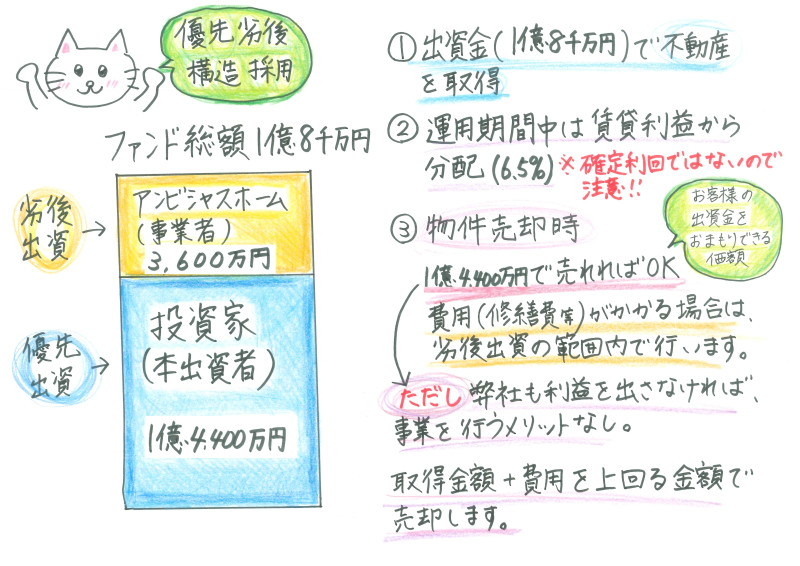 優先劣後
構造採用
ファンド総額1億8千万円
劣後
出資
アンビシャスホーム
(事業者)
3,600万円
優先
出資
投資家
(本出資者)
1億4,400万円
①出資金(1億8千万円)で不動産
を取得
②運用期間中は賃貸利益から
分配(6.5%)※確定利回ではないので
注意!!
③物件売却時
お客様の
出資金を
おまもりできる
価額
1億4,400万円で売れればOK
費用(修繕費等)がかかる場合は、
劣後出資の範囲内で行います。
ただし 弊社も利益を出さなければ、
事業を行うメリットなし。
取得金額+費用を上回る金額で
売却します。